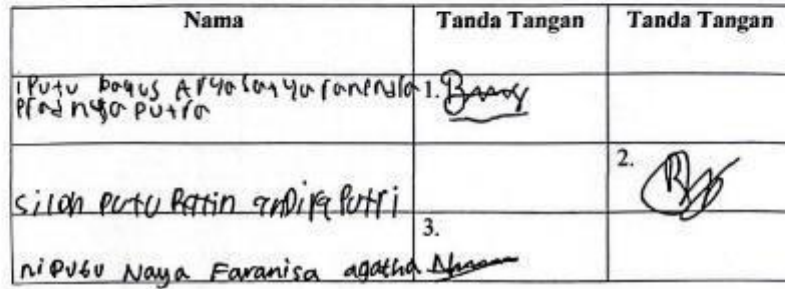 Nama Tanda Tangan Tanda Tangan
i Putu bagus Arya Satya 1.
Pradnya putra
2.
siloh putu Ratin andira putri
3.
ni putu Naya Faranisa agatha